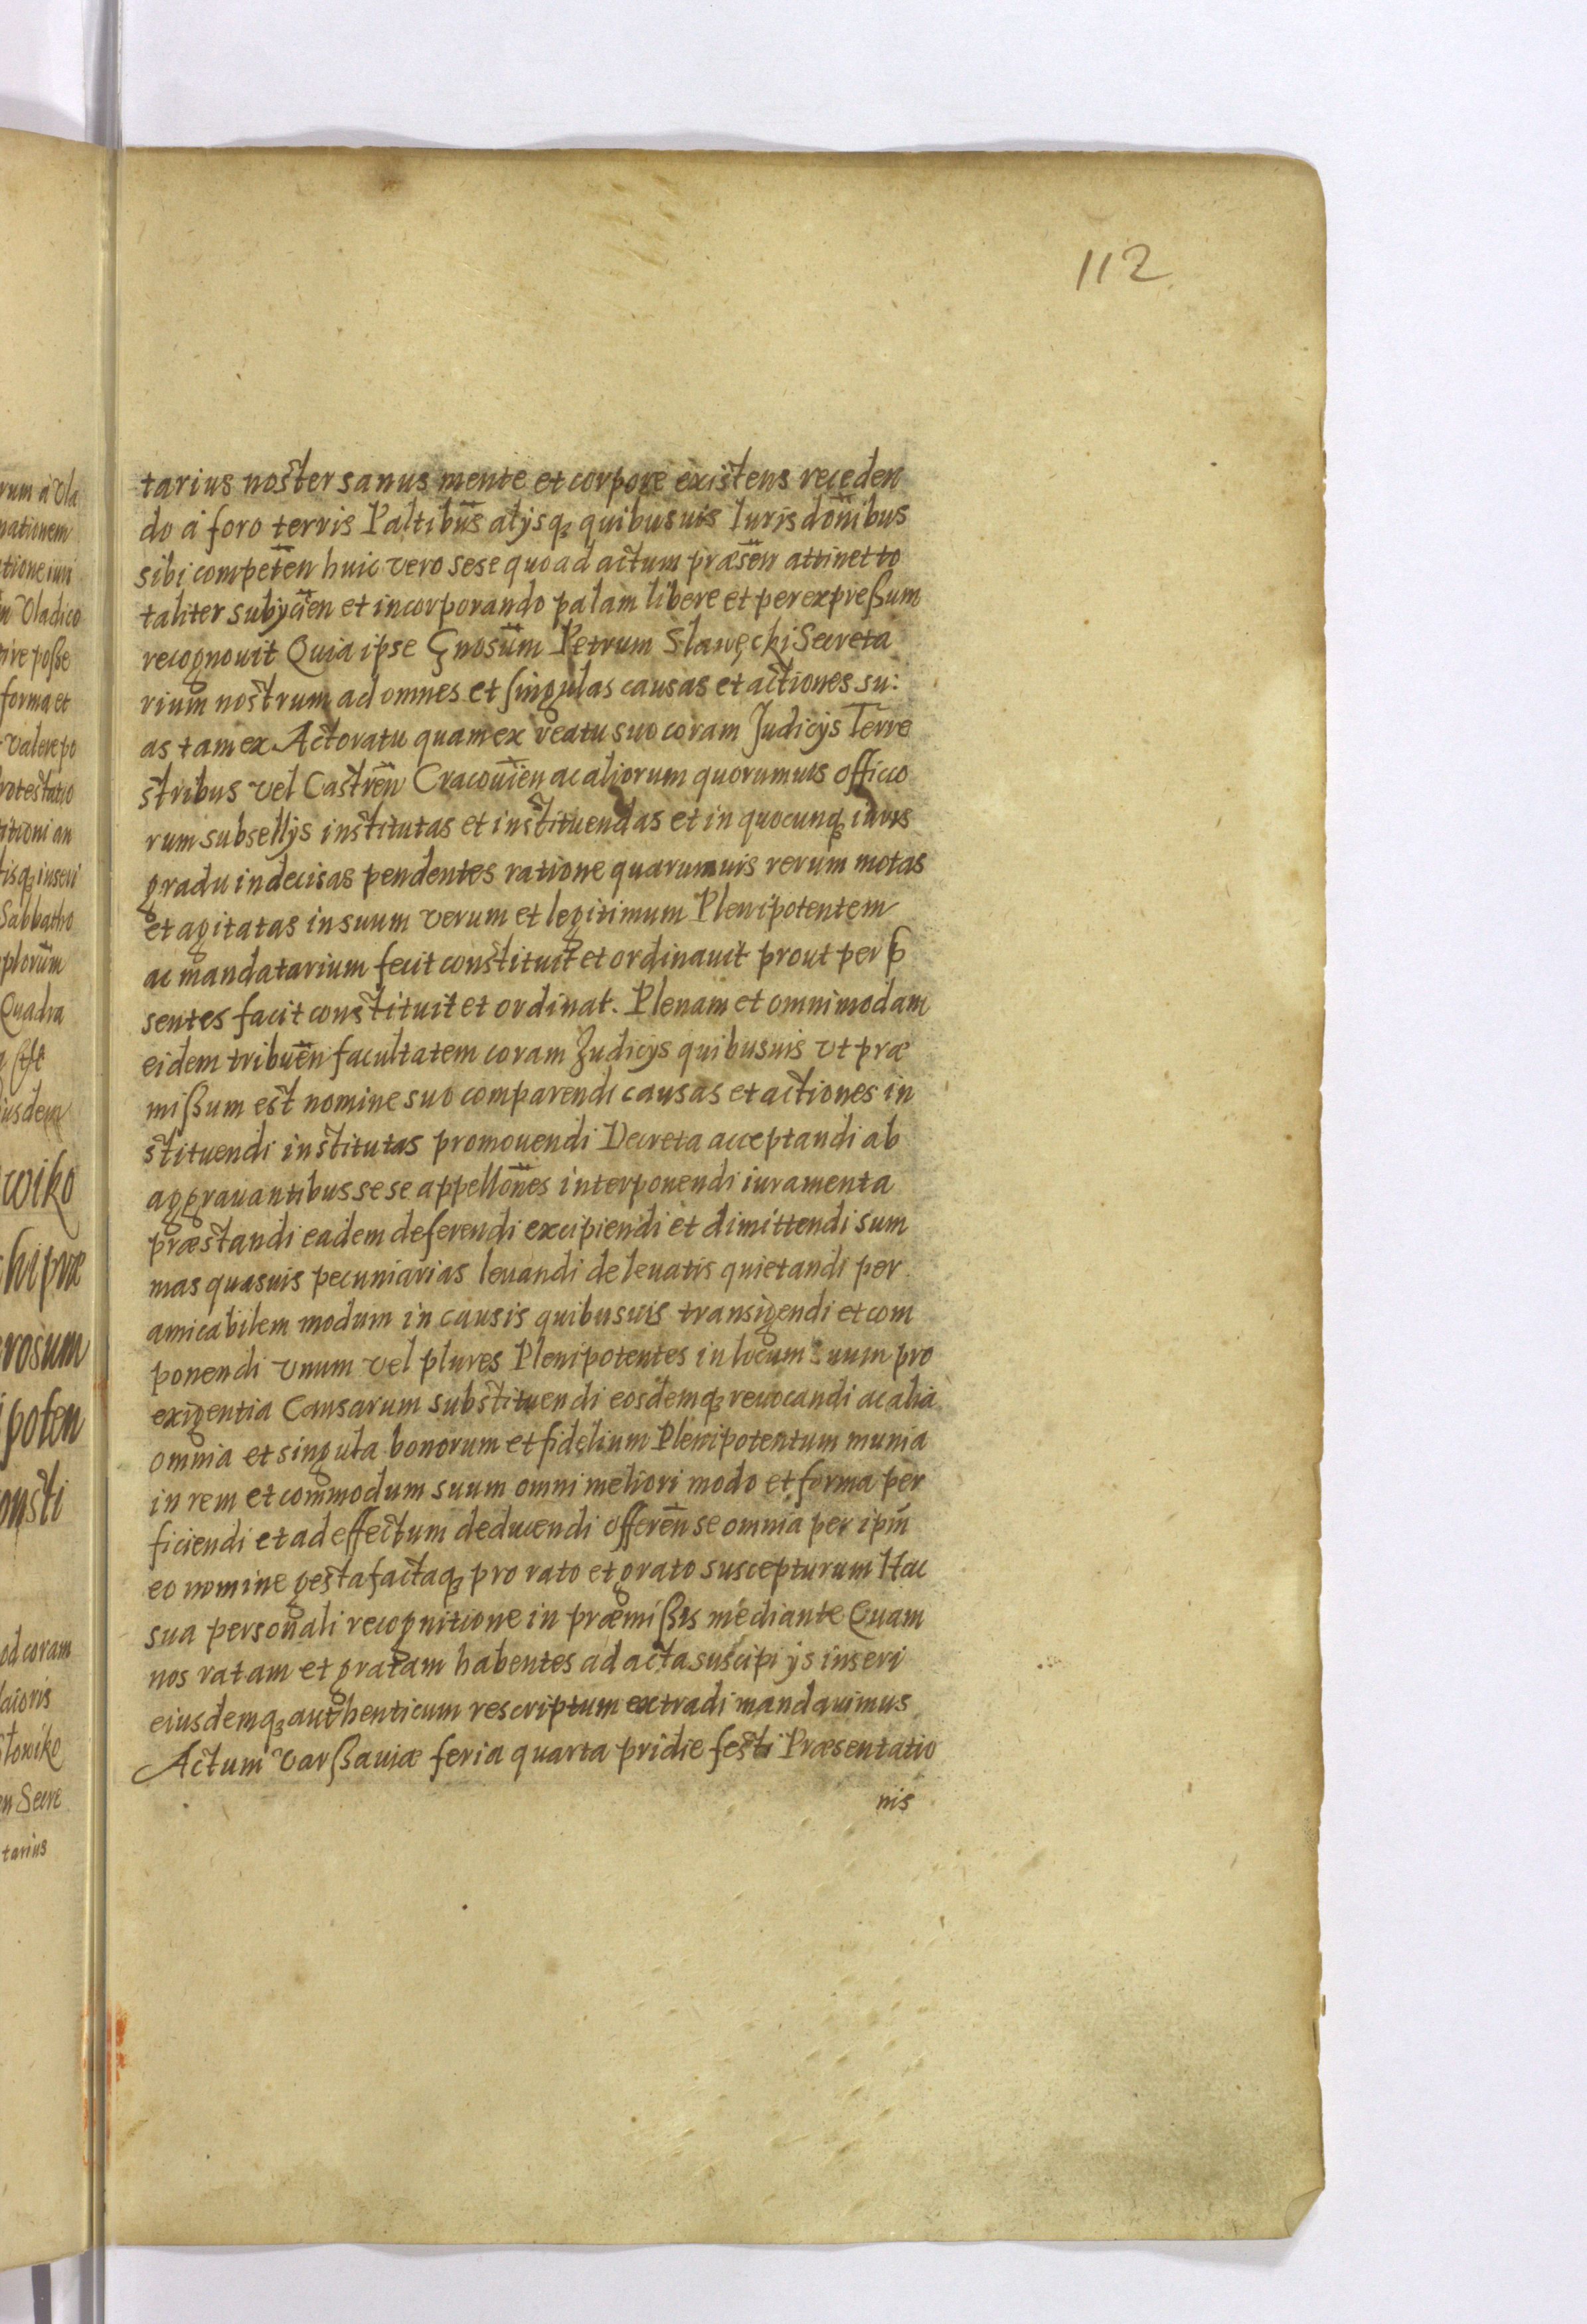 112
tarius noster sanus mente et corpore existens receden
do à foro terris Paltibus alÿsq₃ quibusuis Iurisdonibus
sibi competen huic vero sese quoad actum præsen attinet to
taliter subÿcien et incorporando palam libere et per expreßum
recognouit Quia ipse Gnosum Petrum Slawęcki Secreta
rium nostrum ad omnes et singulas causas et actiones su:
as tam ex Actoratu quam ex reatu suo coram Judicÿs Terre
stribus vel Castren Cracouien ac aliorum quorumuis officio
rum subsellÿs institutas et instituendas et in quocunq₃ iuris
gradu indecisas pendentes ratione quarumuis rerum motas
et agitatas in suum verum et legitimum Plenipotentem
ac mandatarium fecit constituit et ordinauit prout per p
sentes facit constituit et ordinat. Plenam et omnimodam
eidem tribuen facultatem coram Judicÿs quibusuis vt præ
mißum est nomine suo comparendi causas et actiones in
stituendi institutas promouendi Decreta acceptandi ab
aggrauantibus sese appellones interponendi iuramenta
præstandi eadem deferendi excipiendi et dimittendi sum
mas quasuis pecuniarias leuandi de leuatis quietandi per
amicabilem modum in causis quibusuis transigendi et com
ponendi vnum vel plures Plenipotentes in locum suum pro
exigentia Causarum substituendi eosdemq₃ reuocandi ac alia
omnia et singula bonorum et fidelium Plenipotentum munia
in rem et commodum suum omni meliori modo et forma per
ficiendi et ad effectum deducendi offeren se omnia per ipm
eo nomine gesta factaq₃ pro rato et grato suscepturum Hac
sua personali recognitione in præmißis mediante Quam
nos ratam et gratam habentes ad acta suscipi ÿs inseri
eiusdemq₃ authenticum rescriptum extradi mandauimus
Actum Varßauiæ feria quarta pridie festi Præsentatio
nis